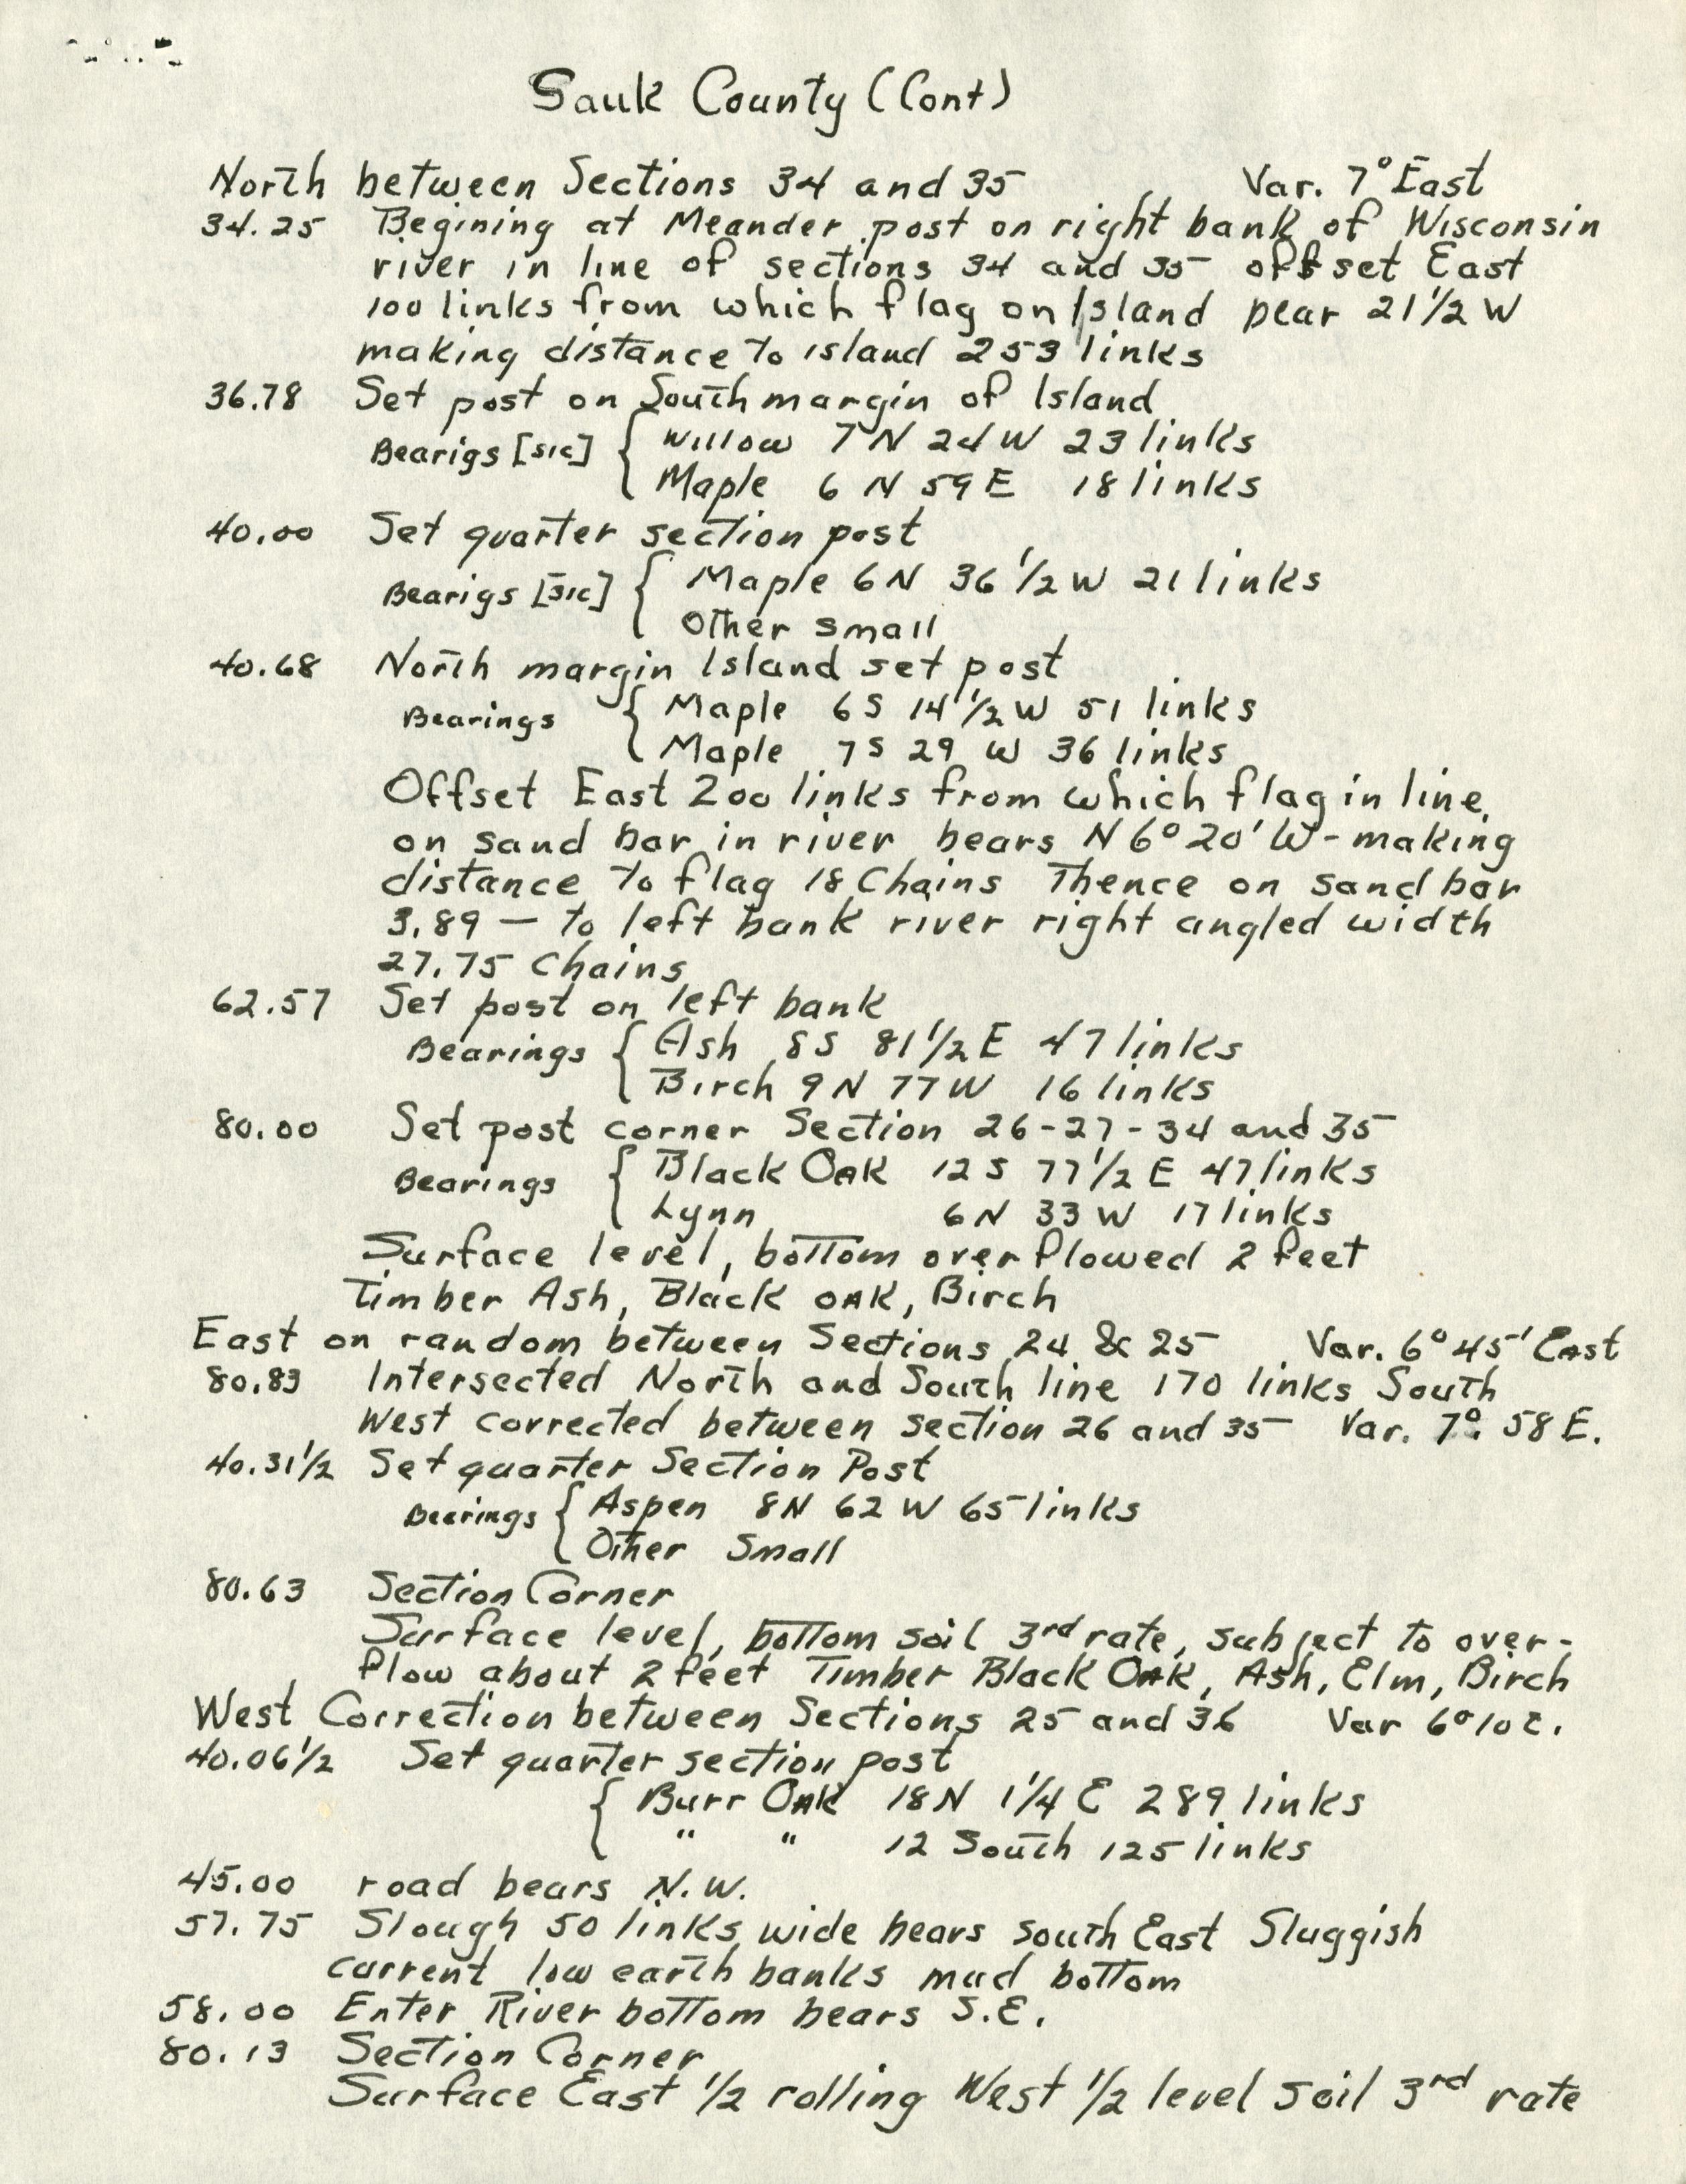 Sauk County (Cont)
North between Sections 34 and 35 Var. 7° East
34.25 Begining at Meander post on right bank of Wisconsin
river in line of sections 34 and 35 offset East
100 links from which flag on Island pear 21 1/2 W
making distance to island 253 links
36.78 Set post on South margin of Island
Bearigs [sic] { Willow 7 N 24 W 23 links
Maple 6 N 59 E 18 links
40.00 Set quarter section post
Bearigs [sic] { Maple 6 N 36 1/2 W 21 links
Other small
40.68 North margin Island set post
Bearings { Maple 6 S 14 1/2 W 51 links
Maple 7 S 29 W 36 links
Offset East 200 links from which flag in line
on sand bar in river bears N 6° 20' W - making
distance to flag 18 Chains Thence on sand bar
3.89 — to left bank river right angled width
27.75 Chains
62.57 Set post on left bank
Bearings { Ash 8 S 81 1/2 E 47 links
Birch 9 N 77 W 16 links
80.00 Set post corner Section 26-27-34 and 35
Bearings { Black Oak 12 S 77 1/2 E 47 links
Lynn 6 N 33 W 17 links
Surface level, bottom overflowed 2 feet
Timber Ash, Black oak, Birch
East on random between Sections 24 & 25 Var. 6° 45' East
80.83 Intersected North and South line 170 links South
West corrected between section 26 and 35 Var. 7° 58 E.
40.31 1/2 Set quarter Section Post
Bearings { Aspen 8 N 62 W 65 links
Other Small
80.63 Section Corner
Surface level, bottom soil 3rd rate, subject to over-
flow about 2 feet Timber Black Oak, Ash, Elm, Birch
West Correction between Sections 25 and 36 Var 6° 10 E.
40.06 1/2 Set quarter section post
{ Burr Oak 18 N 1 1/4 E 289 links
" " 12 South 125 links
45.00 road bears N.W.
57.75 Slough 50 links wide bears South East Sluggish
current low earth banks mud bottom
58.00 Enter River bottom bears S.E.
80.13 Section Corner
Surface East 1/2 rolling West 1/2 level soil 3rd rate